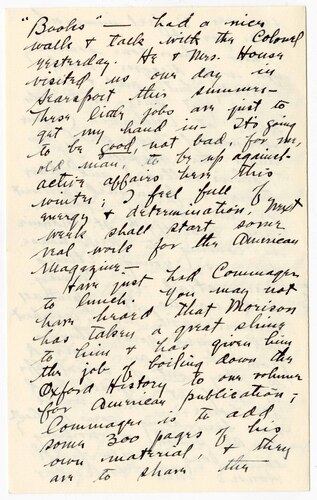 "Books" — had a nice
walk & talk with the Colonel
yesterday. He & Mrs. House
visited us one day in
Searsport this summer —
These little jobs are just to
get my hand in — It's going
to be good, not bad, for me,
old man, to be up against
active affairs here this
winter; I feel full of
energy & determination. Next
week shall start some
real work for the American
Magazine —
Have just had Commager
to lunch. You may not
have heard that Morison
has taken a great shine
to him & has given him
the job of boiling down the
Oxford History to one volume
for American publication;
Commager is to add
some 300 pages of his
own material, & they
are to share the